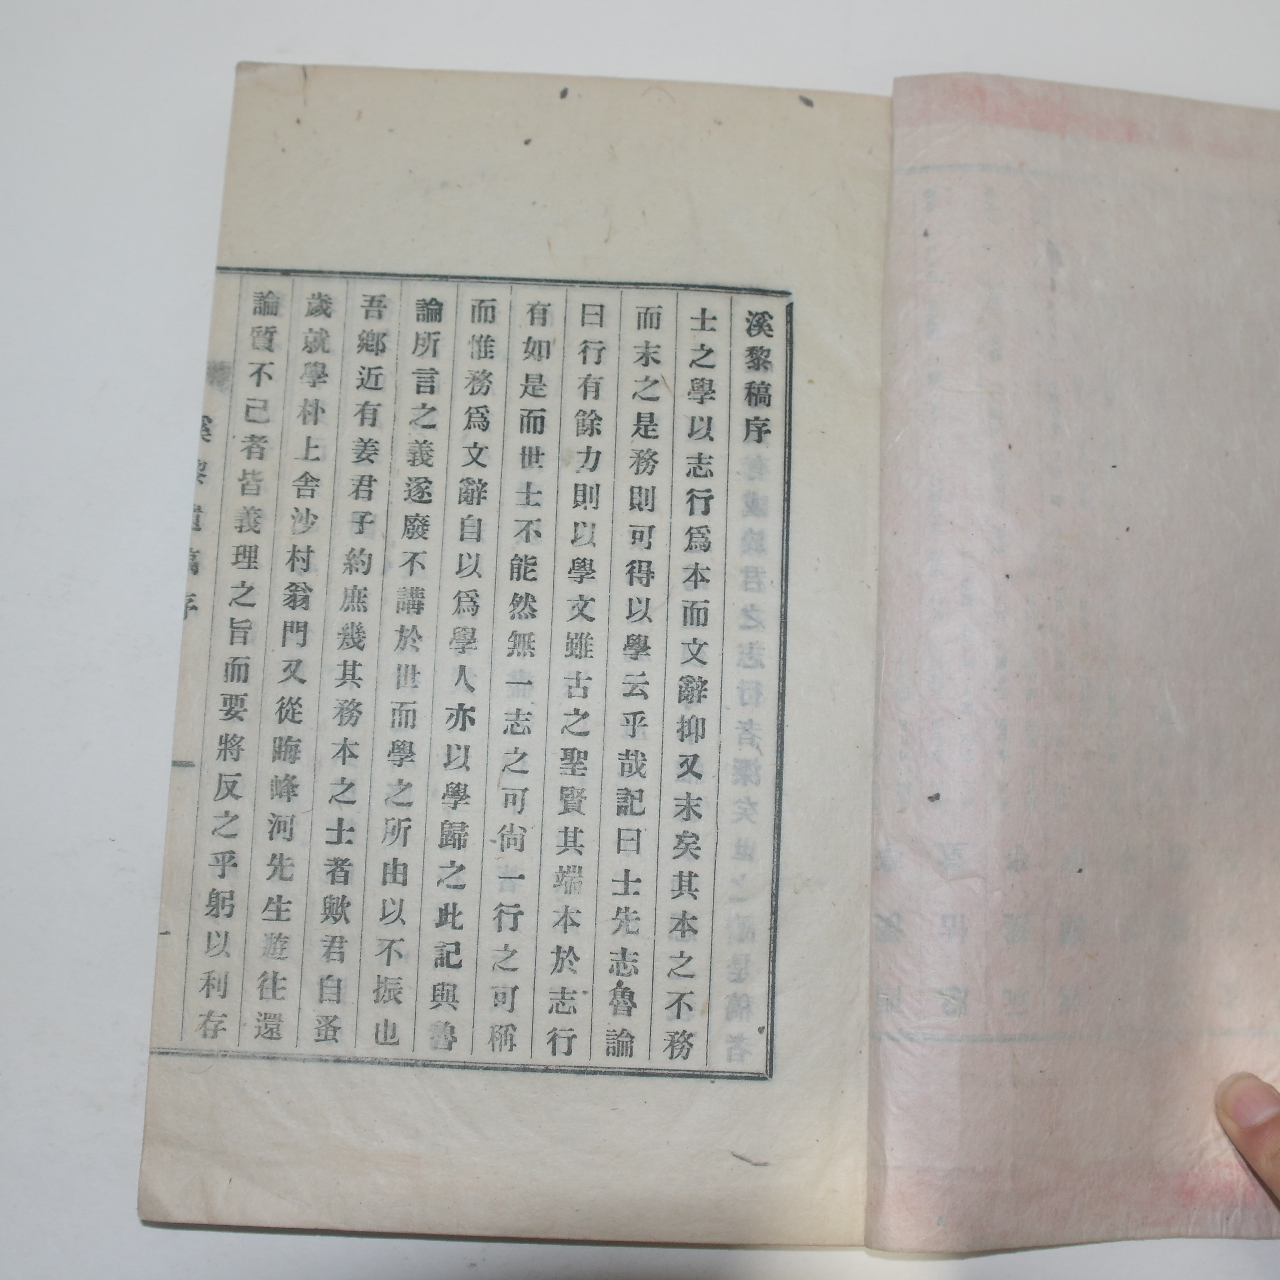 溪黎稿序
士之學以志行爲本而文辭抑又末矣其本之不務
而末之是務則可得以學云乎哉記曰士先志魯論
曰行有餘力則以學文雖古之聖賢其端本於志行
有如是而世士不能然無一志之可尙一行之可稱
而惟務爲文辭自以爲學人亦以學歸之此記與魯
論所言之義遂廢不講於世而學之所由以不振也
吾鄕近有姜君子約庶幾其務本之士者歟君自蚤
歲就學朴上舍沙村翁門又從晦峰河先生遊往還
論質不已者皆義理之旨而要將反之乎躬以利存
溪黎遺稿序
一